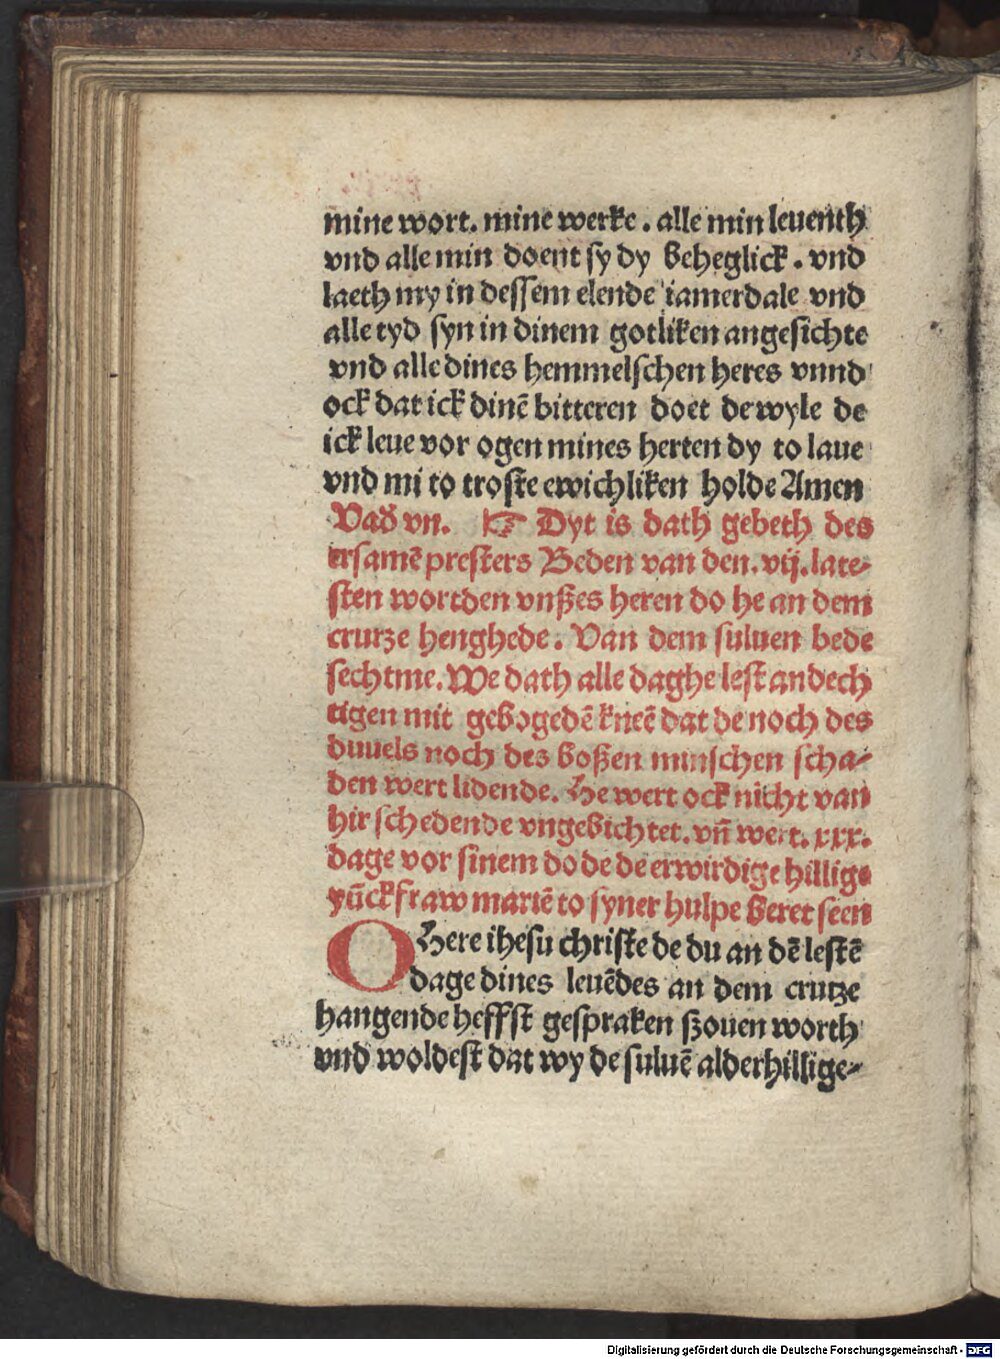 mine wort. mine werke. alle min leuenth
vnd alle min doent sy dy beheglick. vnd
laeth my in dessem elende iamerdale vnd
alle tyd syn in dinem gotliken angesichte
vnd alle dines hemmelschen heres vnnd
ock dat ick dinē bitteren doet de wyle de
ick leue vor ogen mines herten dy to laue
vnd mi to troste ewichliken holde Amen
vn. ☞ Dyt is dath gebeth des
ersamē presters Beden van den. vij. late-
sten wortden vnßes heren do he an dem
crutze henghede. Van dem suluen bede
sechtme. We dath alle daghe lest andech
tigen mit gebogedē kneē dat de noch des
duuels noch des boßen minschen scha-
den wert lidende. He wert ock nicht van
hir schedende vngebichtet. vñ wert. xxx.
dage vor sinem dode de erwirdige hillige
yūckfraw mariē to syner hulpe beret seen
O Here ihesu christe de du an dē lestē
dage dines leuēdes an dem crutze
hangende heffst gespraken szouen worth
vnd woldest dat wy de suluē alderhillige-
Digitalisierung gefördert durch die Deutsche Forschungsgemeinschaft - DFG